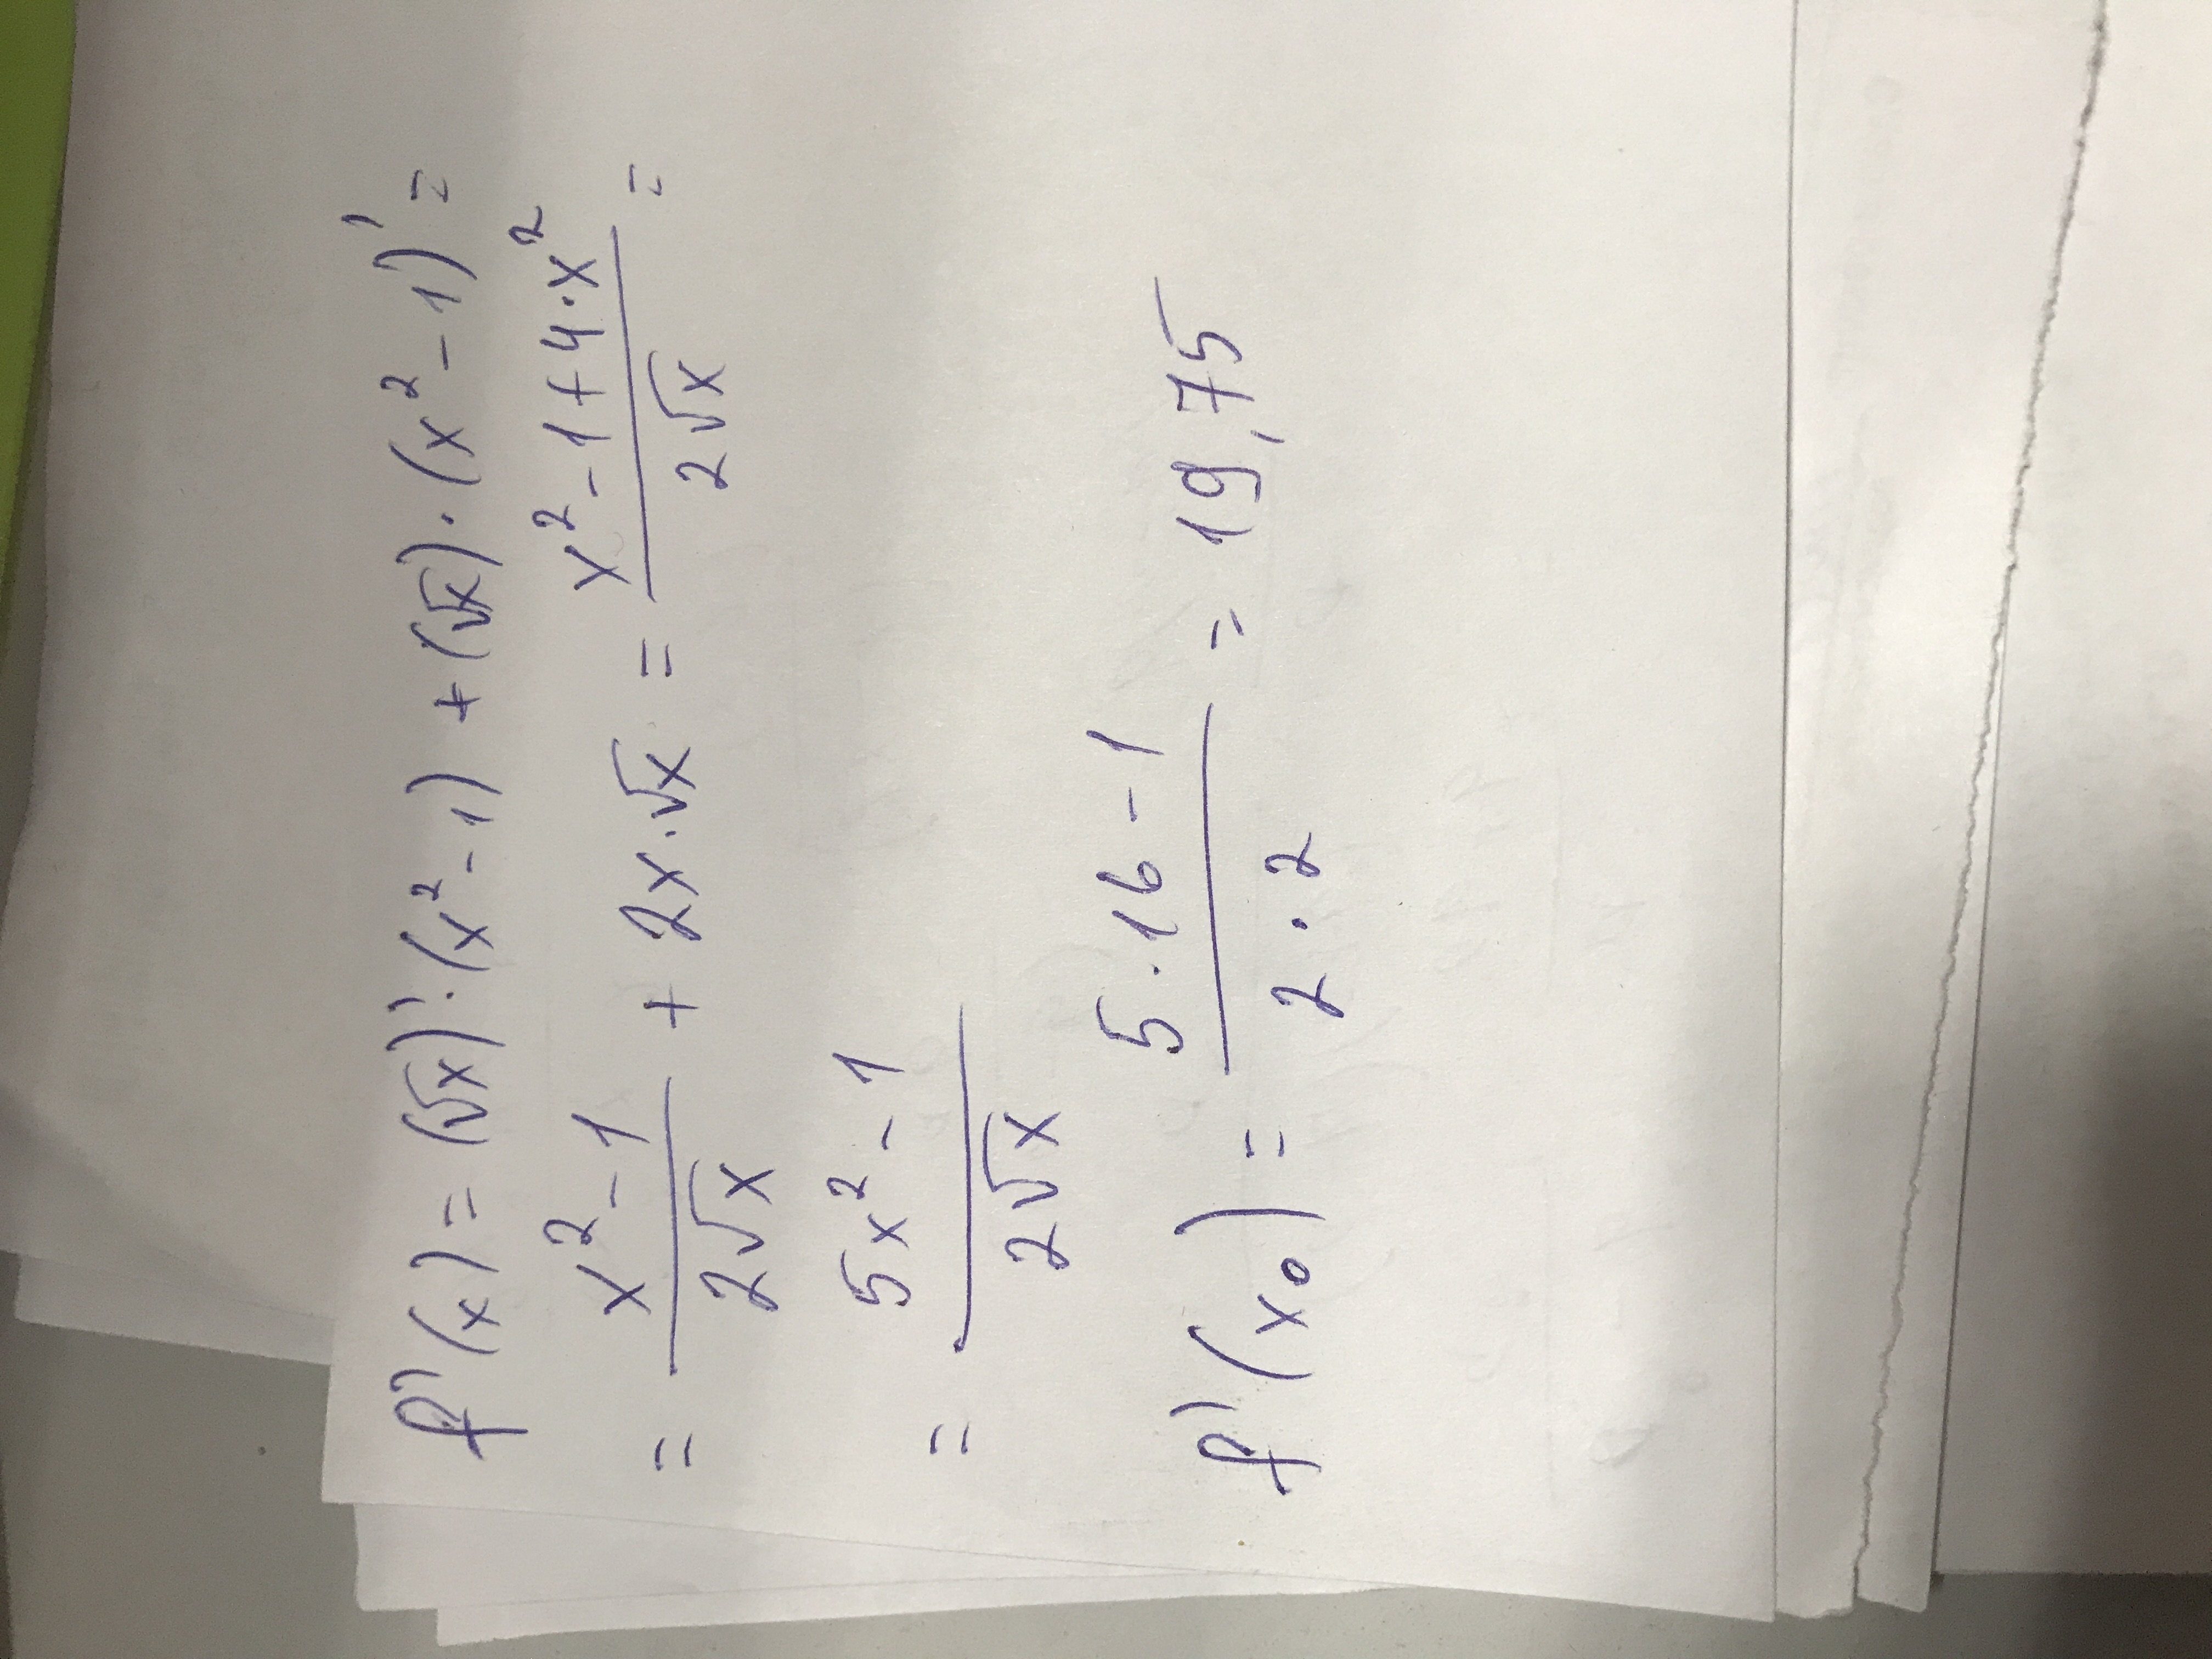 f'(x) = (√x)'·(x²-1) + (√x)·(x²-1)' =
= (x²-1)/(2√x) + 2x·√x = (x²-1+4·x²)/(2√x) =
= (5x²-1)/(2√x)
f'(x₀) = (5·16-1)/(2·2) = 19,75